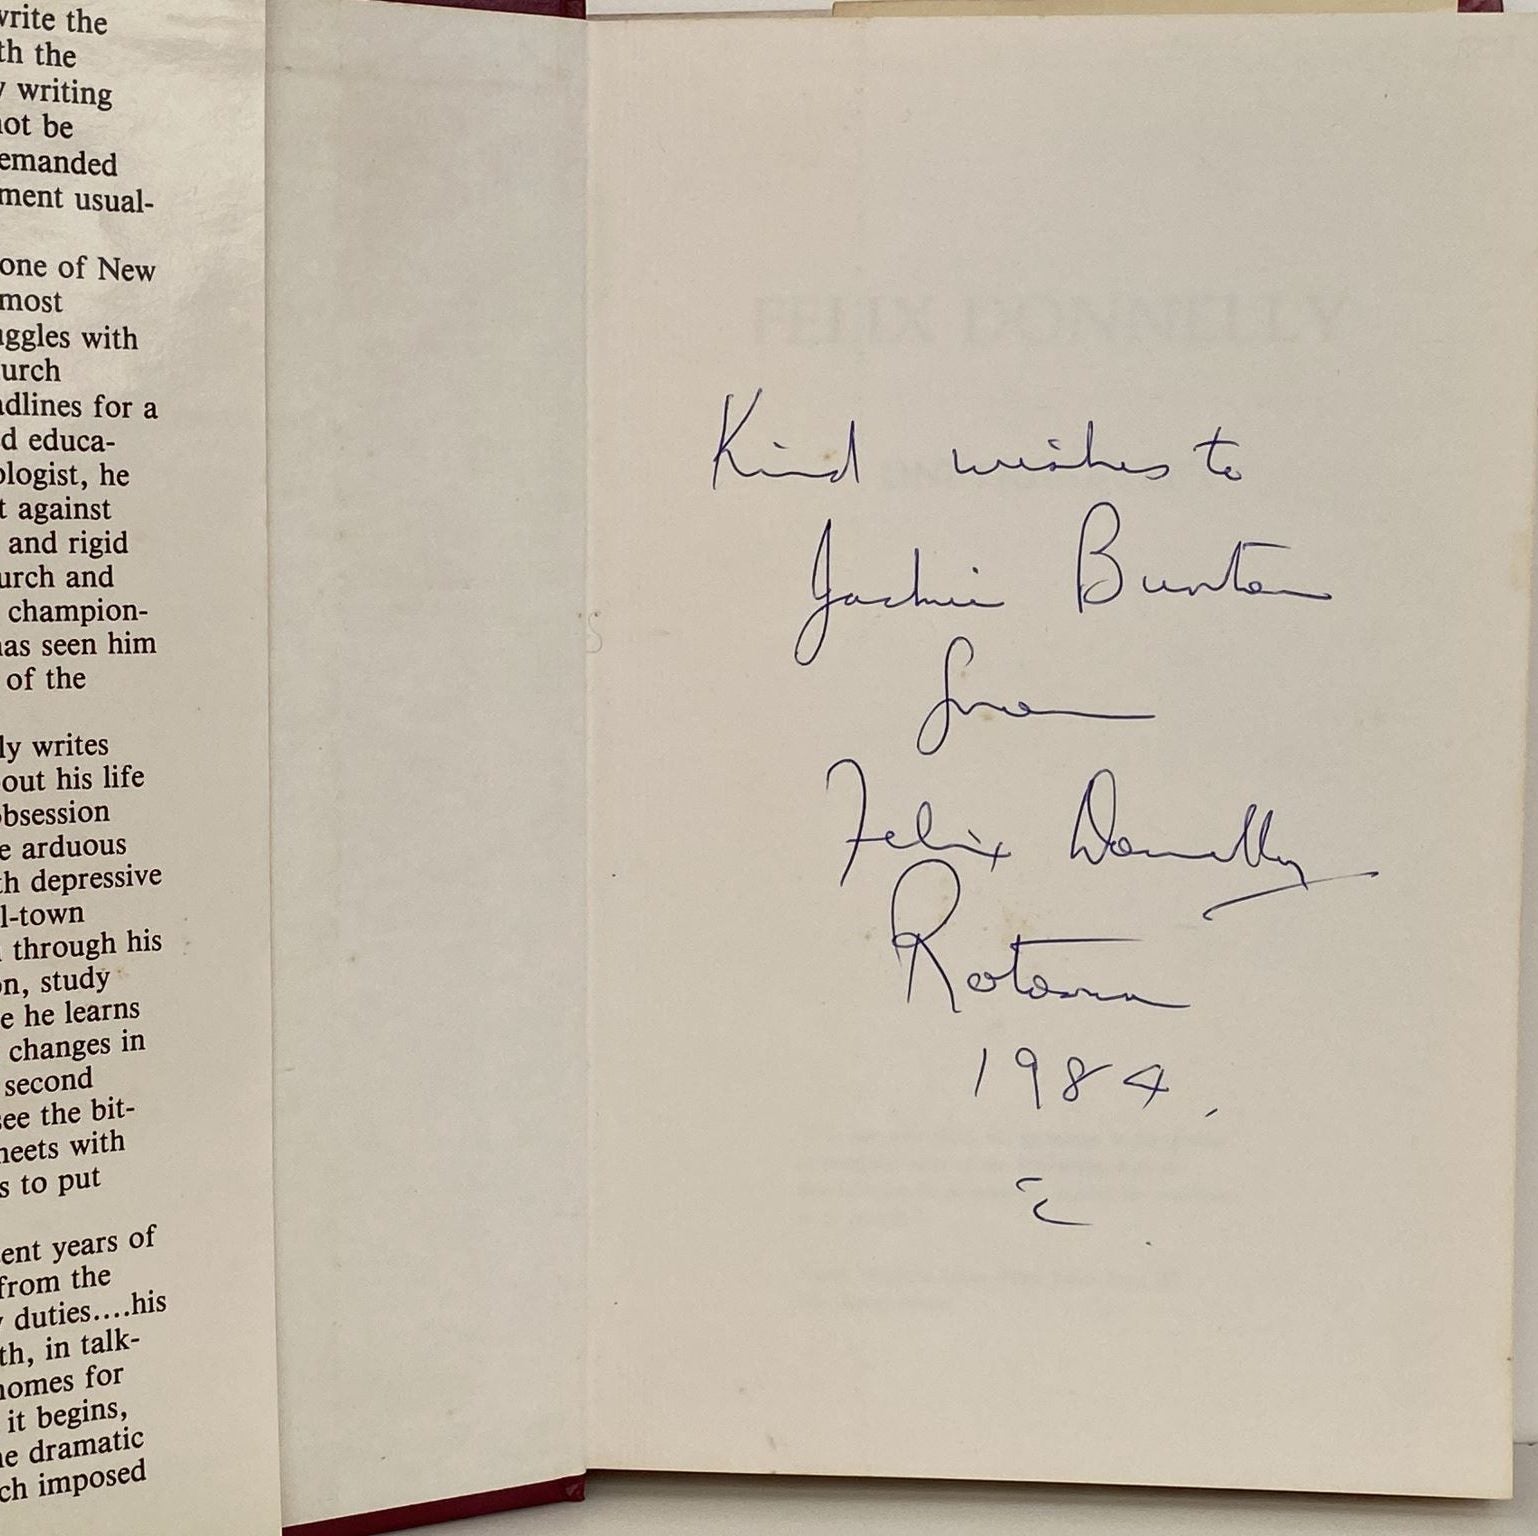 write the
th the
y writing
not be
emanded
ment usual-
one of New
most
uggles with
urch
adlines for a
d educa-
ologist, he
t against
and rigid
urch and
champion-
has seen him
of the
ly writes
out his life
obsession
e arduous
th depressive
l-town
through his
on, study
e he learns
changes in
second
see the bit-
meets with
s to put
ent years of
from the
y duties....his
th, in talk-
homes for
it begins,
he dramatic
ch imposed
FELIX DONNELLY
Kind wishes to
Jackie Bunten
from
Felix Donnelly
Rotorua
1984.